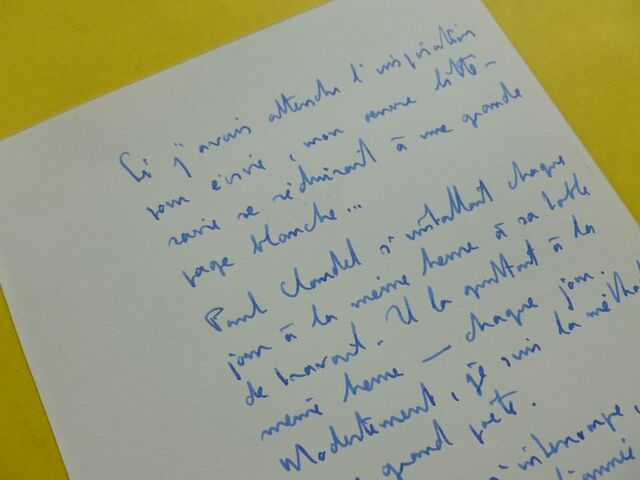 Si j'avais attendu l'inspiration
pour écrire, mon œuvre litté-
raire se réduirait à une grande
page blanche...
Paul Claudel s'installait chaque
jour à la même heure à sa table
de travail. Il la quittait à la
même heure — chaque jour.
Modestement, je suis la méthod
grand poète.
m'interrompe,
l'année